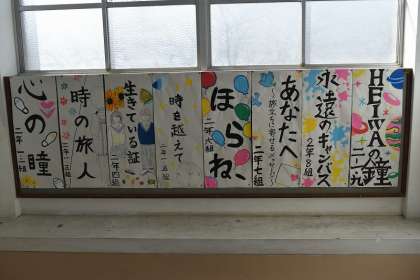 心の瞳
時の旅人
生きている証
二年四組
時を越えて
ほらね、
二年六組
あなたへ
〜旅立ちに寄せるメッセージ〜
二年七組
永遠のキャンバス
2年8組
HEIWAの鐘
二ー九